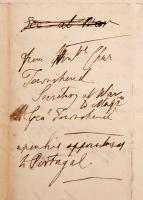 from Honble Chas
Townshend
Secretary at War
to Majr
Genl Townshend
upon his appointment
to Portugal.